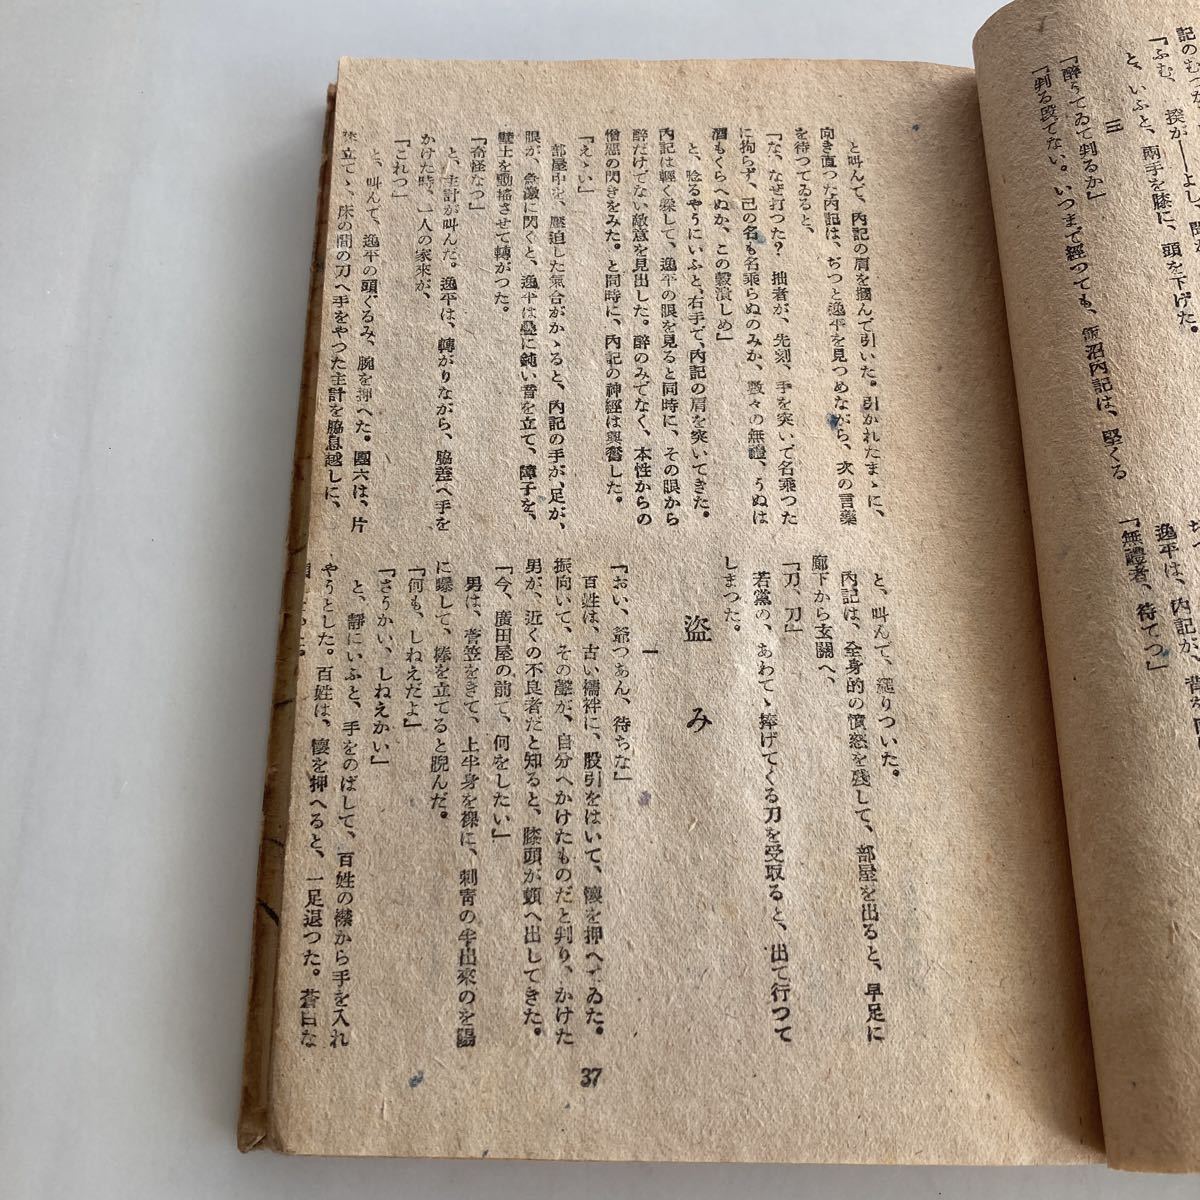 記のむつか
「ふむ、挨が――よし、聞か
と、いふと、兩手を膝に、頭を下げた。
三
「醉うてゐて判るか」
「判る段でない。いつまで經つても、飯沼内記は、堅くる
ぢつ
逸平は、内記が、背を
「無禮者、待てつ」
と叫んで、内記の肩を摑んで引いた。引かれたまゝに、
向き直つた内記は、ぢつと逸平を見つめながら、次の言葉
を待つてゐると、
「な、なぜ打つた？　拙者が、先刻、手を突いで名乘つた
に拘らず、己の名も名乘らぬのみか、數々の無禮、うぬは
酒もくらへぬか、この穀潰しめ」
と、唸るやうにいふと、右手で、内記の肩を突いてきた。
内記は輕く躱して、逸平の眼を見ると同時に、その眼から
醉だけでない敵意を見出した。醉のみでなく、本性からの
憎惡の閃きをみた。と同時に、内記の神經は興奮した。
「えゝい」
部屋中を、壓迫した氣合がかゝると、内記の手が、足が、
眼が、急激に閃くと、逸平は疊に鈍い音を立て、障子を、
壁土を動搖させて轉がつた。
「奇怪なつ」
と、主計が叫んだ。逸平は、轉がりながら、脇差へ手を
かけた時、一人の家來が、
「これつ」
と、叫んで、逸平の頭ぐるみ、腕を押へた。團六は、片
膝立てゝ、床の間の刀へ手をやつた主計を脇息越しに、
と、叫んで、縋りついた。
内記は、全身的の憤怒を殘して、部屋を出ると、早足に
廊下から玄關へ、
「刀、刀」
若黨の、あわてゝ捧げてくる刀を受取ると、出て行つて
しまつた。
盜み
一
「おい、爺つあん、待ちな」
百姓は、古い襦袢に、股引をはいて、懷を押へてゐた。
振向いて、その聲が、自分へかけたものだと判り、かけた
男が、近くの不良者だと知ると、膝頭が顫へ出してきた。
「今、廣田屋の前で、何をしたい」
男は、菅笠をきて、上半身を裸に、刺靑の半出來のを陽
に曝して、棒を立てると睨んだ。
「何も、しねえだよ」
「さうかい、しねえかい」
と、靜にいふと、手をのばして、百姓の襟から手を入れ
やうとした。百姓は、懷を押へると、一足退つた。蒼白な
37